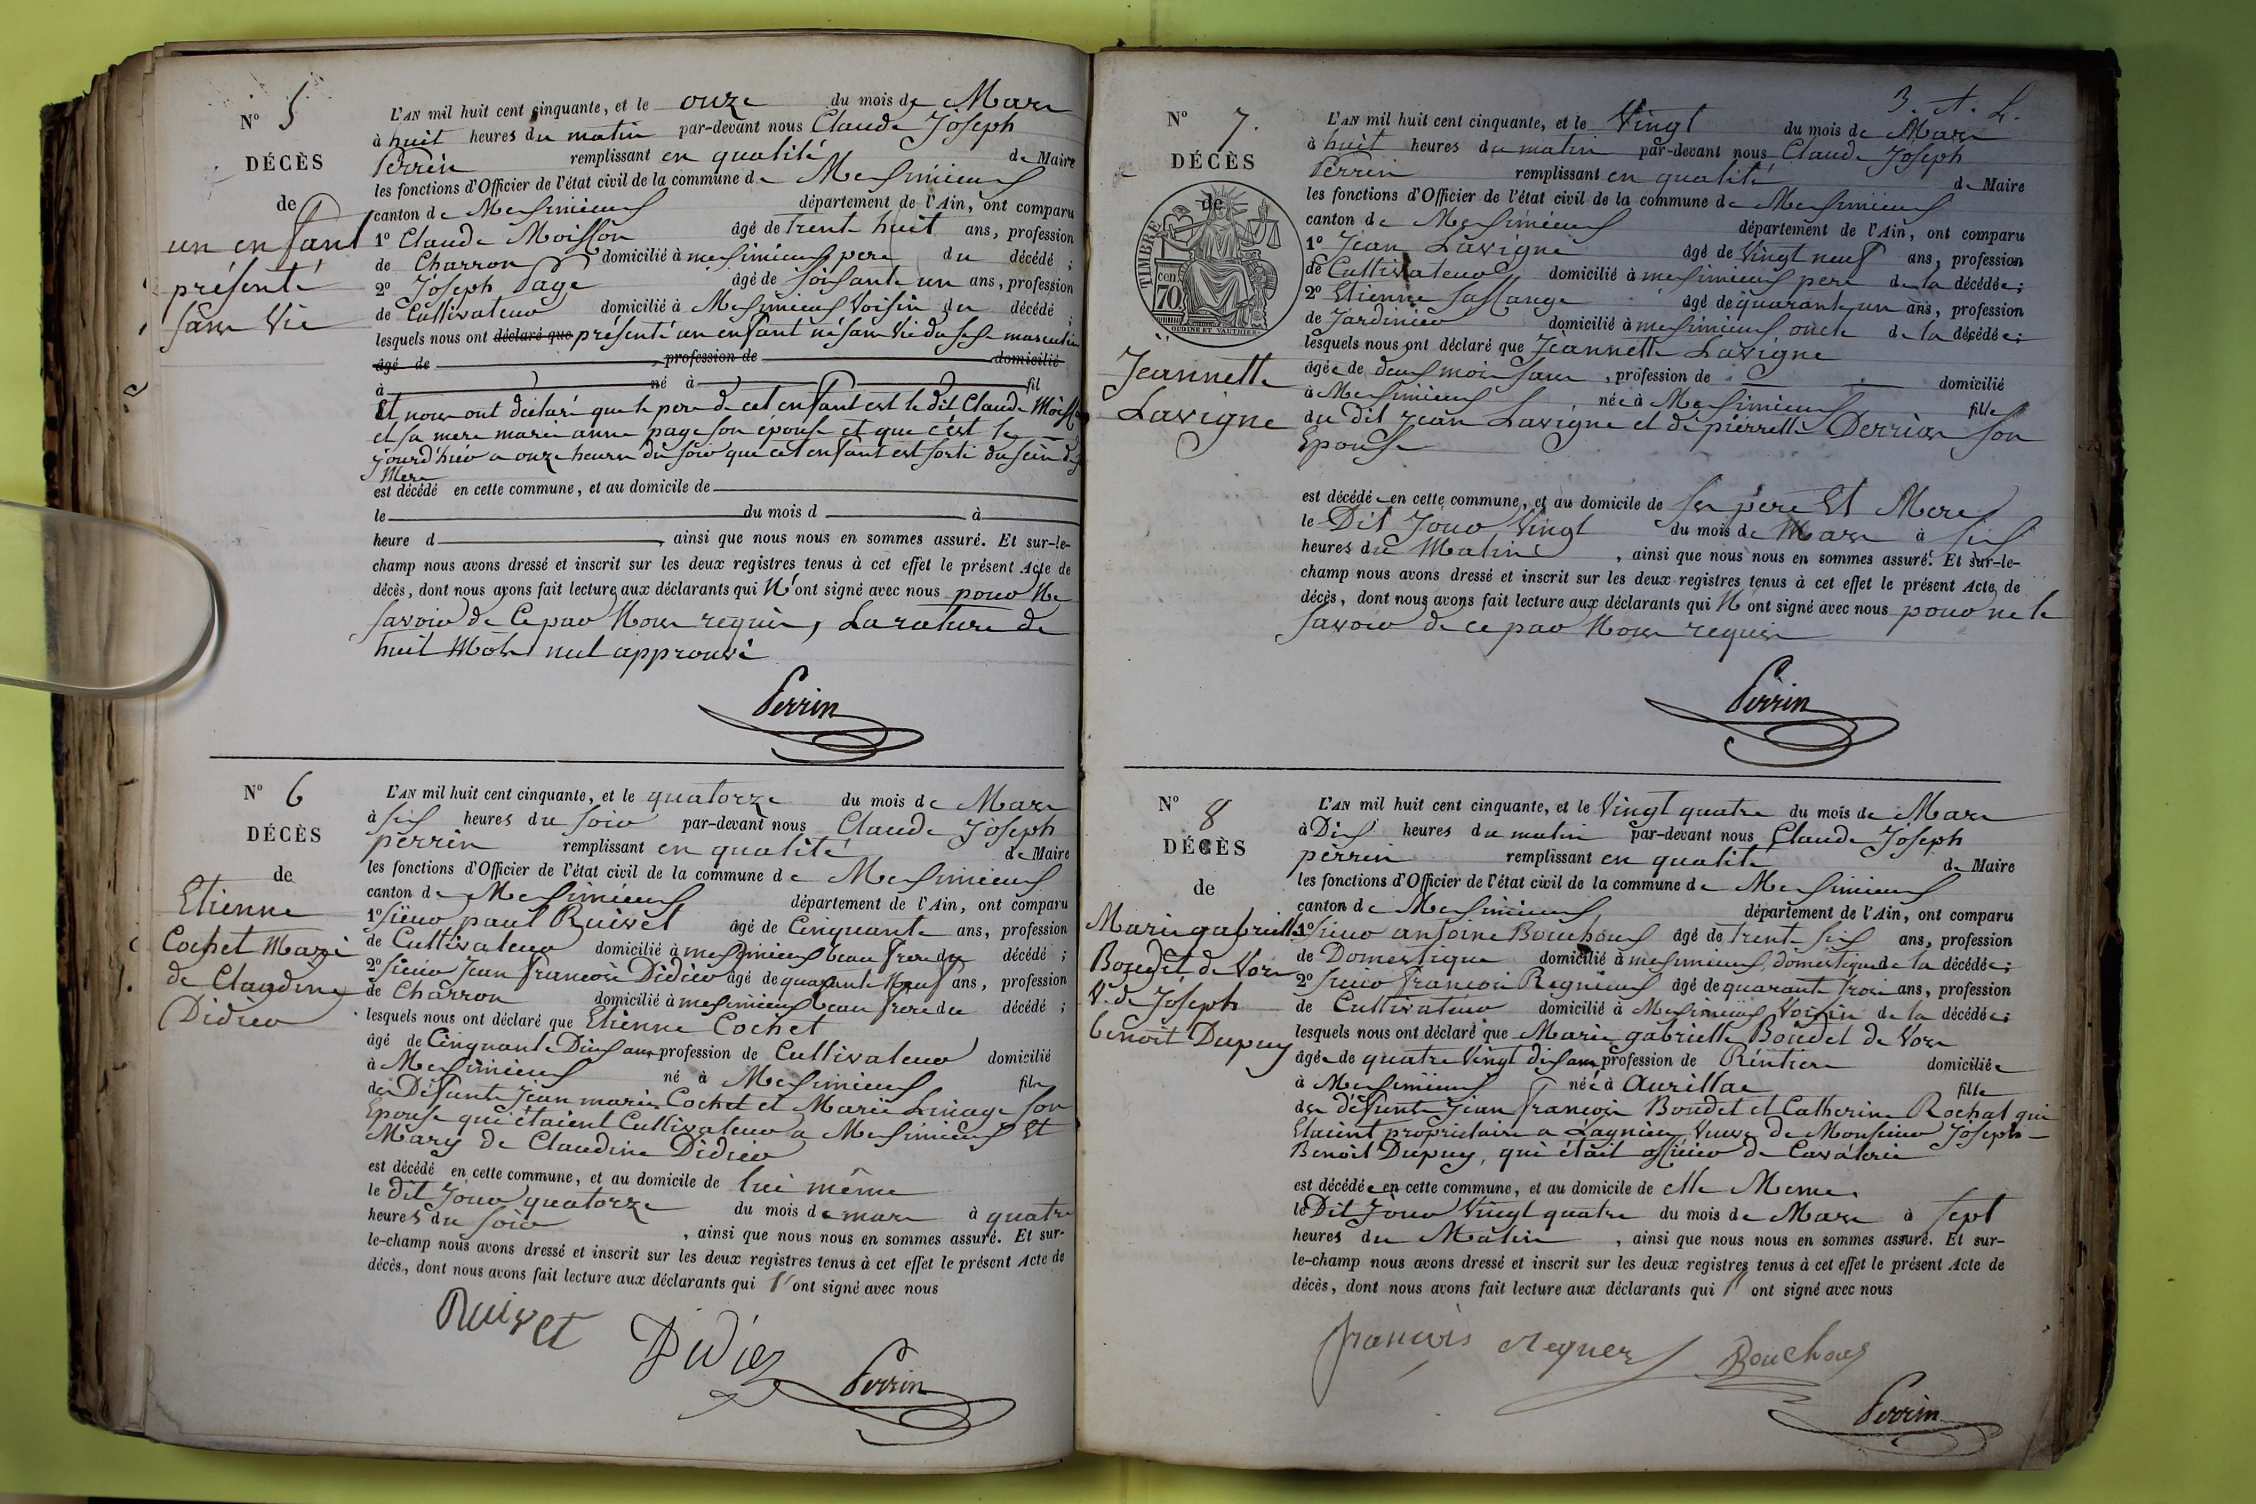 N° 5
DÉCÈS
de
un enfant
présenté
sans Vie
L'AN mil huit cent cinquante, et le onze du mois de Mars
à huit heures du matin par-devant nous Claude Joseph
Perrin remplissant en qualité de Maire
les fonctions d'Officier de l'état civil de la commune de Messimieux
canton de Messimieux département de l'Ain, ont comparu
1° Claude Moisson âgé de trente huit ans, profession
de Charron domicilié à messimieux pere du décédé ;
2° Joseph Page âgé de soisante un ans, profession
de Cultivateur domicilié à Messimieux Voisin du décédé ;
lesquels nous ont déclaré que présenté un enfant né sans Vie du sexe masculin
âgé de , profession de domicilié
à né à fil
Et nous ont déclaré que le pere de cet enfant est le dit Claude Moisson
et sa mere marie anne page son epouse et que c'est le
jourd'hier a onze heures du soir que cet enfant est sorti du sein de sa
Mere
est décédé en cette commune, et au domicile de
le du mois d à
heure d , ainsi que nous nous en sommes assuré. Et sur-le-
champ nous avons dressé et inscrit sur les deux registres tenus à cet effet le présent Acte de
décès, dont nous avons fait lecture aux déclarants qui N'ont signé avec nous pour Ne
savoir de Ce par Nous requis, La rature de
huit Mots nul approuvé
Perrin
N° 6
DÉCÈS
de
Etienne
Cochet Mari
de Claudine
Didier
L'AN mil huit cent cinquante, et le quatorze du mois de Mars
à six heures du soir par-devant nous Claude Joseph
perrin remplissant en qualité de Maire
les fonctions d'Officier de l'état civil de la commune de Messimieux
canton de Messimieux département de l'Ain, ont comparu
1° sieur paul Ruivet âgé de Cinquante ans, profession
de Cultivateur domicilié à messimieux beau frere du décédé ;
2° sieur Jean françois Didier âgé de quarante Neuf ans, profession
de Charron domicilié à messimieux beau frere du décédé ;
lesquels nous ont déclaré que Etienne Cochet
âgé de Cinquante Dix ans profession de Cultivateur domicilié
à Messimieux né à Messimieux fils
des Défunts Jean marie Cochet et Marie Linage son
Epouse qui étaient Cultivateur a Messimieux Et
Mary de Claudine Didier
est décédé en cette commune, et au domicile de lui même
le dit Jour quatorze du mois de mars à quatre
heures du soir , ainsi que nous nous en sommes assuré. Et sur-
le-champ nous avons dressé et inscrit sur les deux registres tenus à cet effet le présent Acte de
décès, dont nous avons fait lecture aux déclarants qui l'ont signé avec nous
Ruivet
Didier
Perrin
3. A. L.
N° 7.
DÉCÈS
de
TIMBRE
70 cen
OUDINÉ ET VAUTHIER
Jeannette
Lavigne
L'AN mil huit cent cinquante, et le Vingt du mois de Mars
à huit heures du matin par-devant nous Claude Joseph
Perrin remplissant en qualité de Maire
les fonctions d'Officier de l'état civil de la commune de Messimieux
canton de Messimieux département de l'Ain, ont comparu
1° Jean Lavigne âgé de Vingt neuf ans, profession
de Cultivateur domicilié à messimieux pere de la décédée ;
2° Etienne Sallange âgé de quarante un ans, profession
de Jardinier domicilié à messimieux oncle de la décédée ;
lesquels nous ont déclaré que Jeannette Lavigne
âgée de deux mois sans , profession de domicilié
à Messimieux née à Messimieux fille
du dit Jean Lavigne et de pierrette Derrias son
Epouse
est décédée en cette commune, et au domicile de ses père Et Mere
le Dit Jour Vingt du mois de Mars à six
heures du Matin , ainsi que nous nous en sommes assuré. Et sur-le-
champ nous avons dressé et inscrit sur les deux registres tenus à cet effet le présent Acte de
décès, dont nous avons fait lecture aux déclarants qui N'ont signé avec nous pour ne le
savoir de ce par Nous requis
Perrin
N° 8
DÉCÈS
de
Marie gabrielle
Boudet de Vors
V. de Joseph
benoit Dupuy
L'AN mil huit cent cinquante, et le Vingt quatre du mois de Mars
à Dix heures du matin par-devant nous Claude Joseph
perrin remplissant en qualité de Maire
les fonctions d'Officier de l'état civil de la commune de Messimieux
canton de Messimieux département de l'Ain, ont comparu
1° sieur antoine Bouchoux âgé de trente six ans, profession
de Domestique domicilié à messimieux domestique de la décédée ;
2° sieur francois Regnieux âgé de quarante trois ans, profession
de Cultivateur domicilié à Messimieux Voisin de la décédée ;
lesquels nous ont déclaré que Marie gabrielle Boudet de Vors
âgée de quatre Vingt dix ans profession de Réntiere domiciliée
à Messimieux née à Aurillac fille
des défunts Jean François Boudet et Catherine Rochat qui
Etaient propriétaire a Lagnieu Veuve de Monsieur Joseph-
Benoit Dupuy, qui était officier de Cavalerie
est décédée en cette commune, et au domicile de elle Meme
le Dit Jour Vingt quatre du mois de Mars à sept
heures du Matin , ainsi que nous nous en sommes assuré. Et sur-
le-champ nous avons dressé et inscrit sur les deux registres tenus à cet effet le présent Acte de
décès, dont nous avons fait lecture aux déclarants qui l'ont signé avec nous
francois regnier
Bouchoux
Perrin